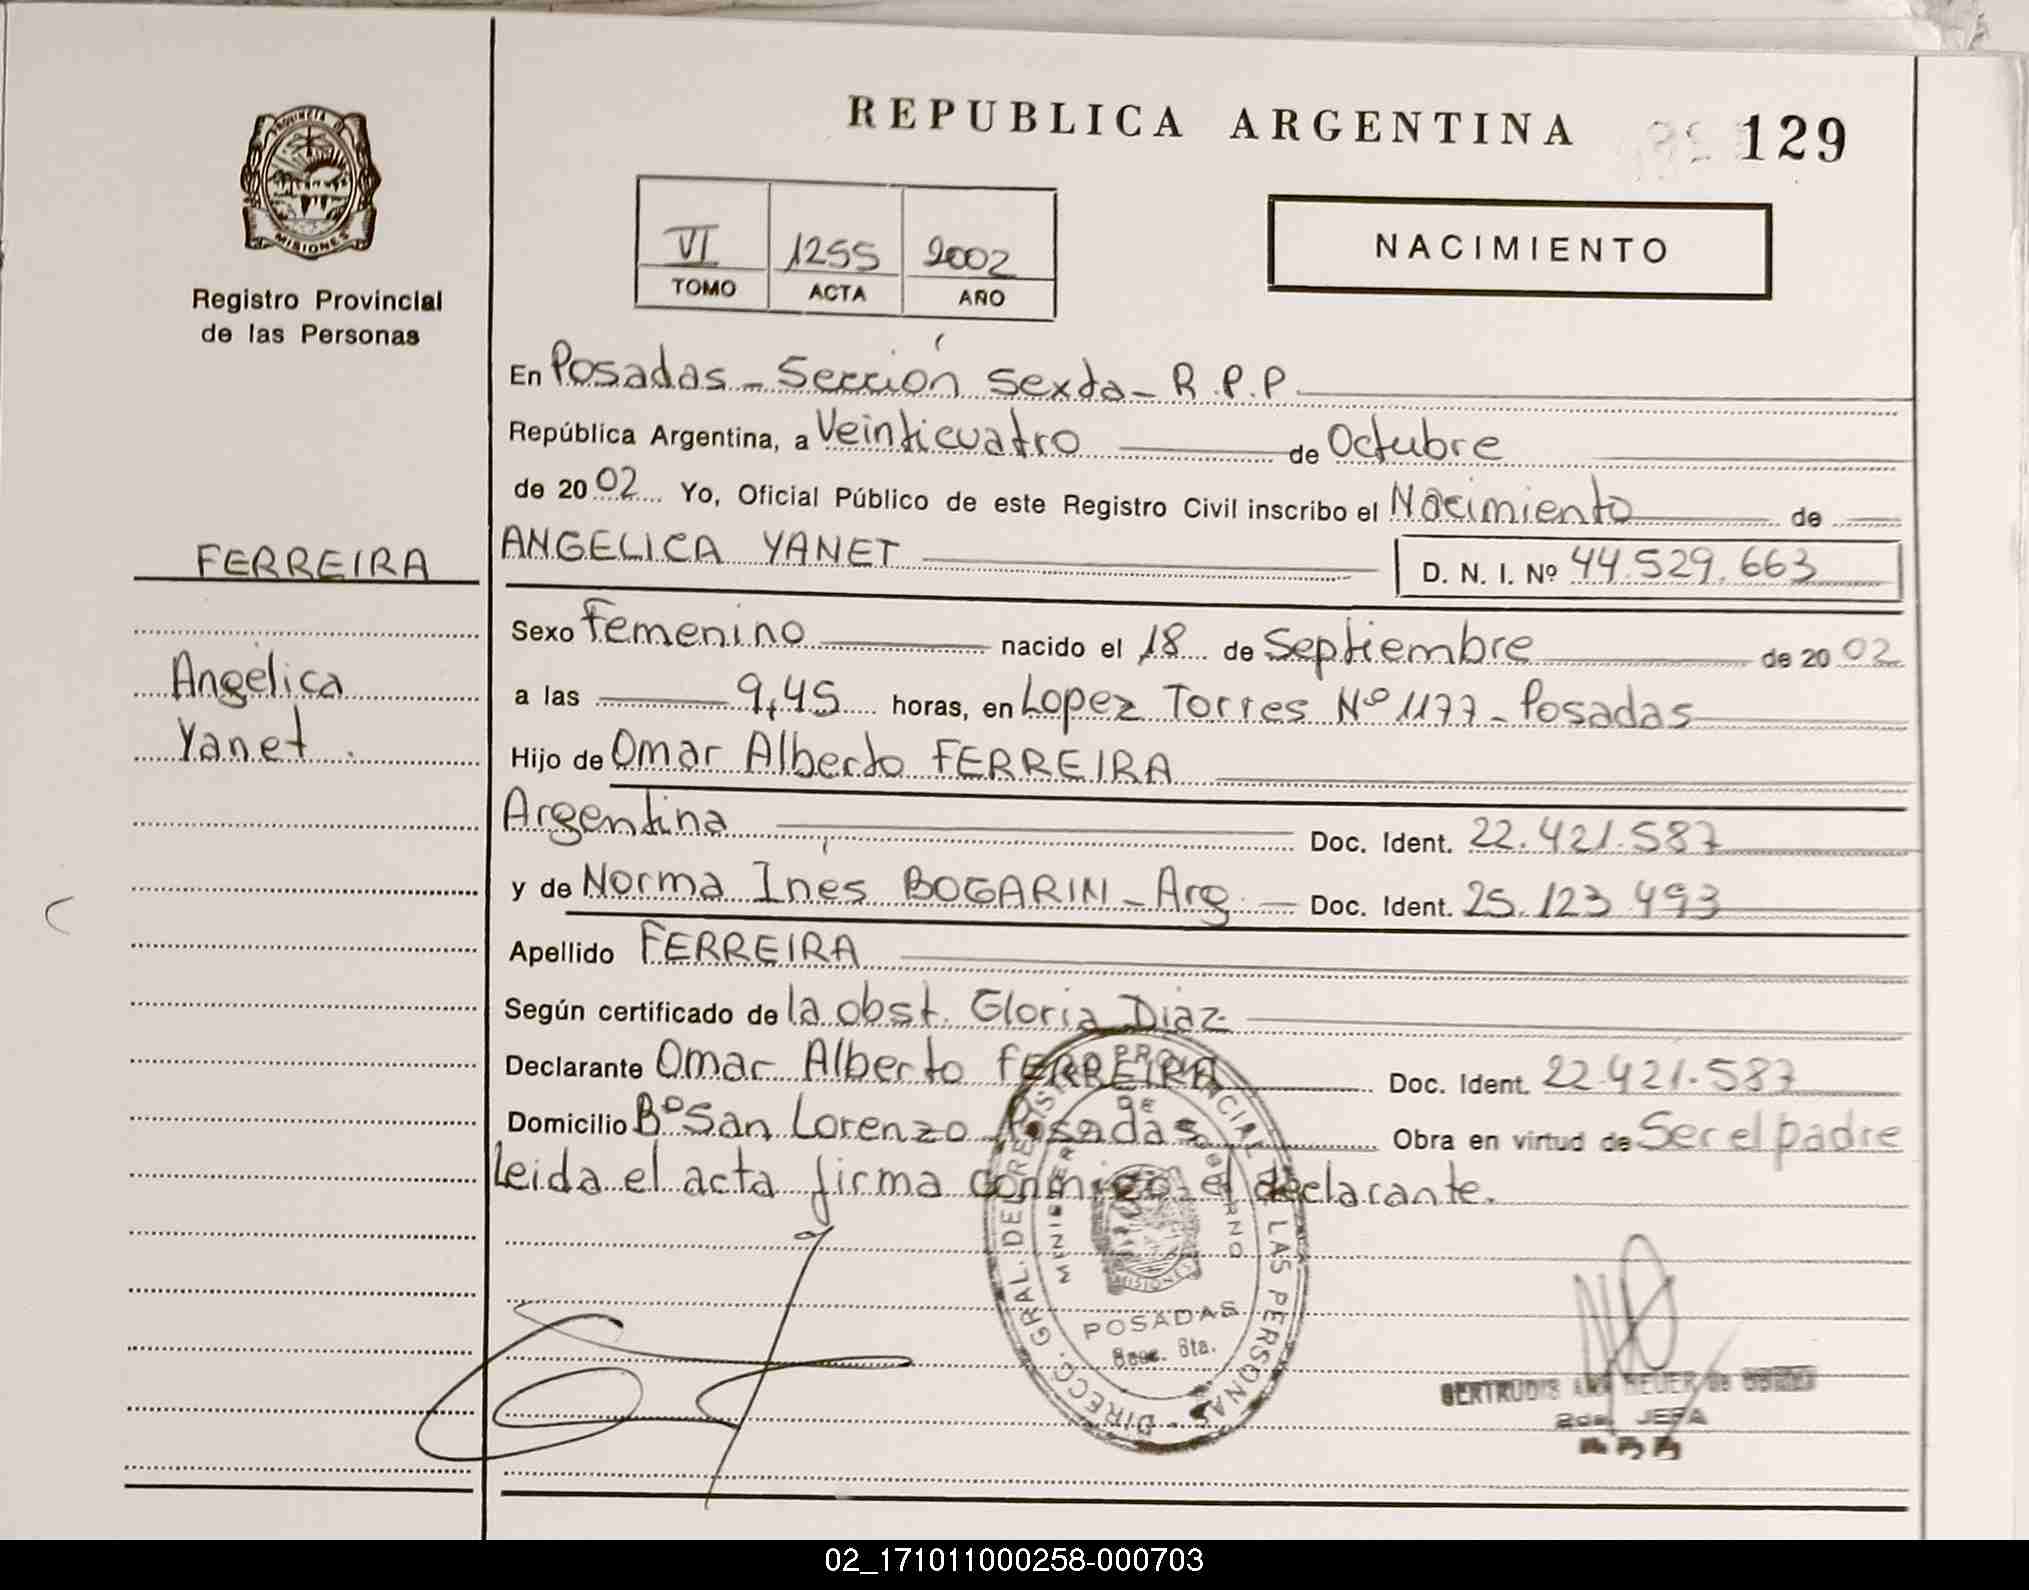 REPUBLICA ARGENTINA 129
PROVINCIA DE
MISIONES
Registro Provincial
de las Personas
VI 1255 2002
TOMO ACTA AÑO
NACIMIENTO
En Posadas - Sección Sexta - R.P.P
República Argentina, a Veinticuatro de Octubre
de 2002 Yo, Oficial Público de este Registro Civil inscribo el Nacimiento de
FERREIRA
ANGELICA YANET D. N. I. Nº 44.529.663
Sexo Femenino nacido el 18 de Septiembre de 2002
Angélica
Yanet.
a las 9,45 horas, en Lopez Torres Nº 1177 - Posadas
Hijo de Omar Alberto FERREIRA
Argentina Doc. Ident. 22.421.587
y de Norma Inés BOGARIN - Arg. Doc. Ident. 25.123.493
Apellido FERREIRA
Según certificado de la obst. Gloria Diaz
Declarante Omar Alberto FERREIRA Doc. Ident. 22.421.587
Domicilio Bº San Lorenzo Posadas Obra en virtud de Ser el padre
Leida el acta firma conmigo el declarante.
DIRECC. GRAL. DEL REGISTRO PROVINCIAL DE LAS PERSONAS
MISIONES
POSADAS
Secc. 6ta.
GERTRUDIS
JEFA
02_171011000258-000703